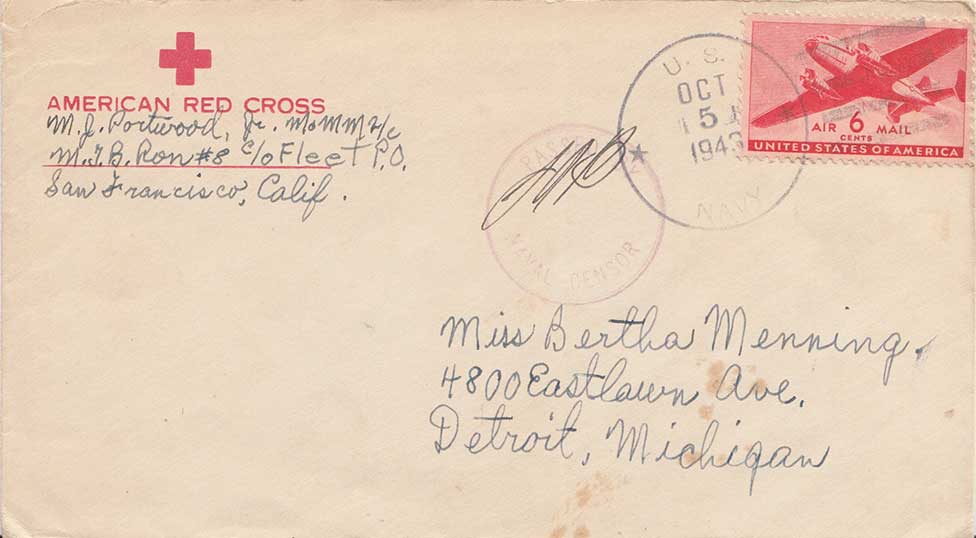 AMERICAN RED CROSS
M. J. Portwood, Jr. MoMM 2/c
M.T.B. Ron #8 c/o Fleet P.O.
San Francisco, Calif.
PASSED BY
NAVAL CENSOR
U. S.
OCT
5
1943
NAVY
AIR 6 MAIL
CENTS
UNITED STATES OF AMERICA
Miss Bertha Menning.
4800 Eastlawn Ave.
Detroit, Michigan